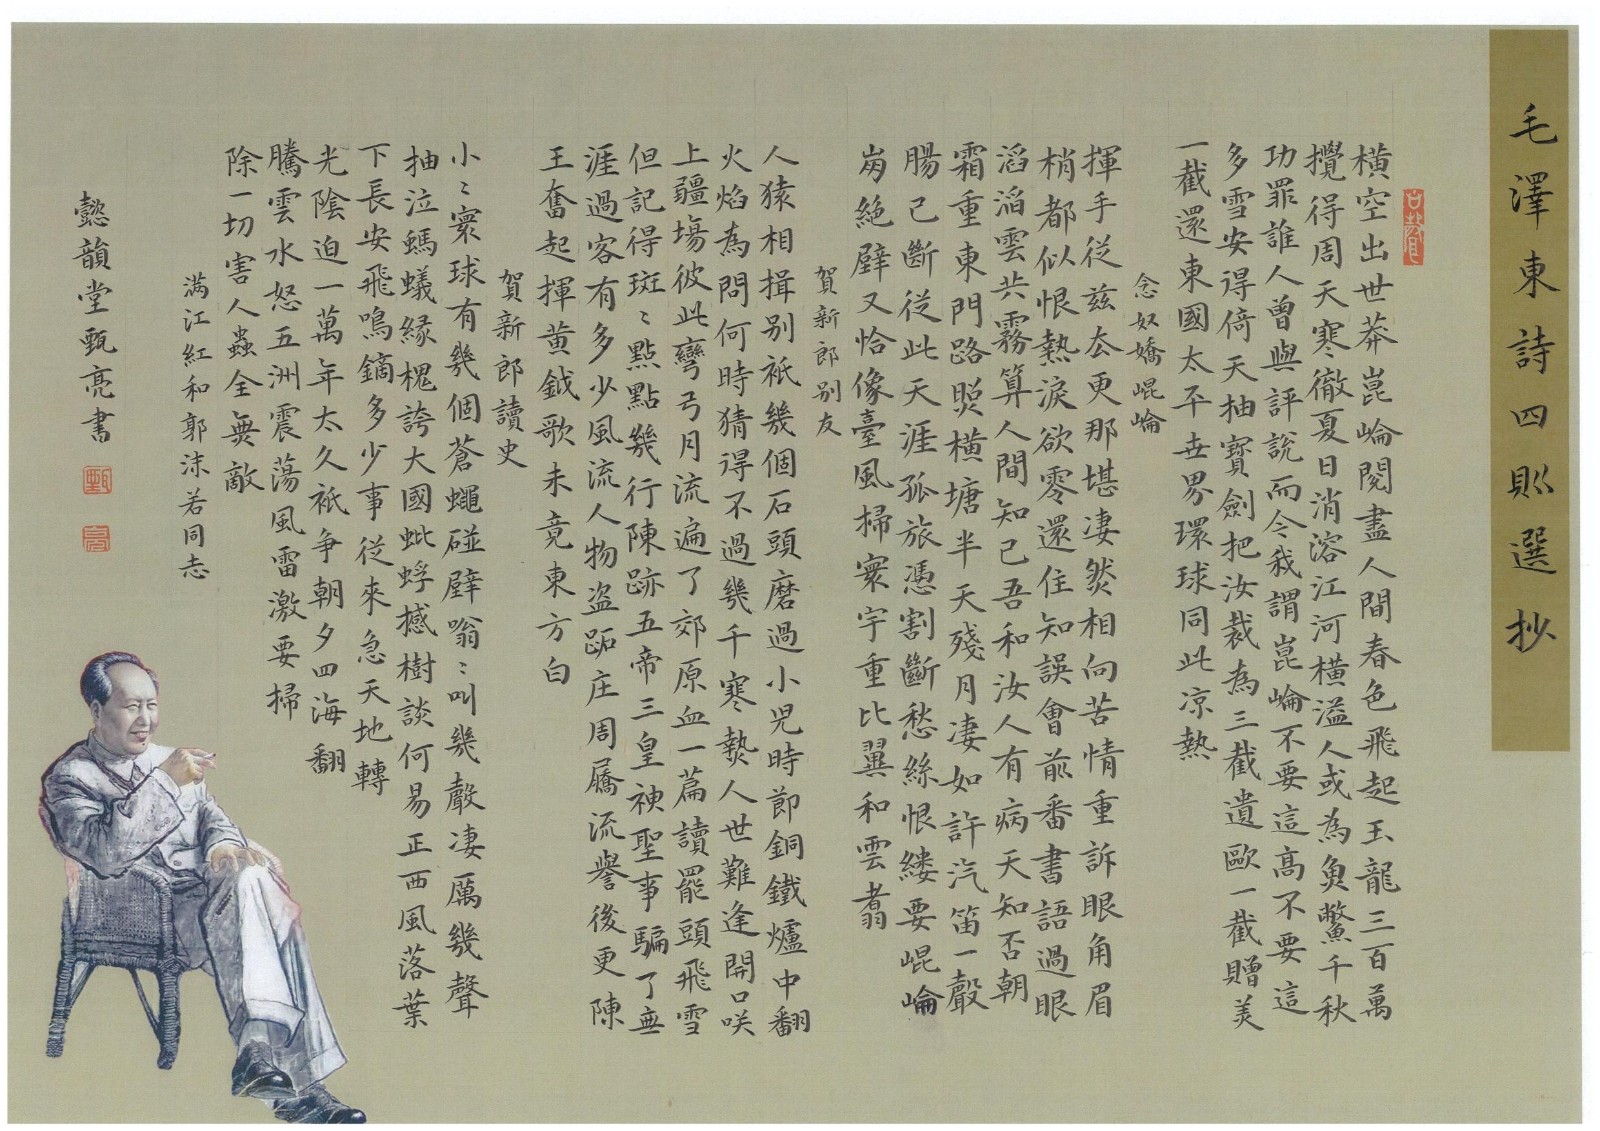 毛澤東詩四則選抄
橫空出世莽崑崘閱盡人間春色飛起玉龍三百萬
攪得周天寒徹夏日消溶江河橫溢人或為魚鱉千秋
功罪誰人曾與評說而今我謂崑崘不要這高不要這
多雪安得倚天抽寶劍把汝裁為三截遺歐一截贈美
一截還東國太平世界環球同此凉熱
念奴嬌崐崘
揮手從兹去更那堪凄然相向苦情重訴眼角眉
梢都似恨熱淚欲零還住知誤會前番書語過眼
滔滔雲共霧算人間知己吾和汝人有病天知否朝
霜重東門路照橫塘半天殘月凄如許汽笛一聲
腸已斷從此天涯孤旅憑割斷愁絲恨縷要崐崘
崩絕壁又恰像臺風掃寰宇重比翼和雲翥
賀新郎别友
人猿相揖别祇幾個石頭磨過小児時節銅鐵爐中翻
火焰為問何時猜得不過幾千寒熱人世難逢開口咲
上疆場彼此彎弓月流遍了郊原血一篇讀罷頭飛雪
但記得斑〻點點幾行陳跡五帝三皇神聖事騙了無
涯過客有多少風流人物盗跖庄周屩流譽後更陳
王奮起揮黄鉞歌未竟東方白
賀新郎讀史
小〻寰球有幾個蒼蠅碰壁嗡〻叫幾聲凄厲幾聲
抽泣螞蟻緣槐誇大國蚍蜉撼樹談何易正西風落葉
下長安飛鳴鏑多少事從來急天地轉
光陰迫一萬年太久祇争朝夕四海翻
騰雲水怒五洲震蕩風雷激要掃
除一切害人蟲全無敵
满江紅和郭沫若同志
懿韻堂甄亮書
甄
亮